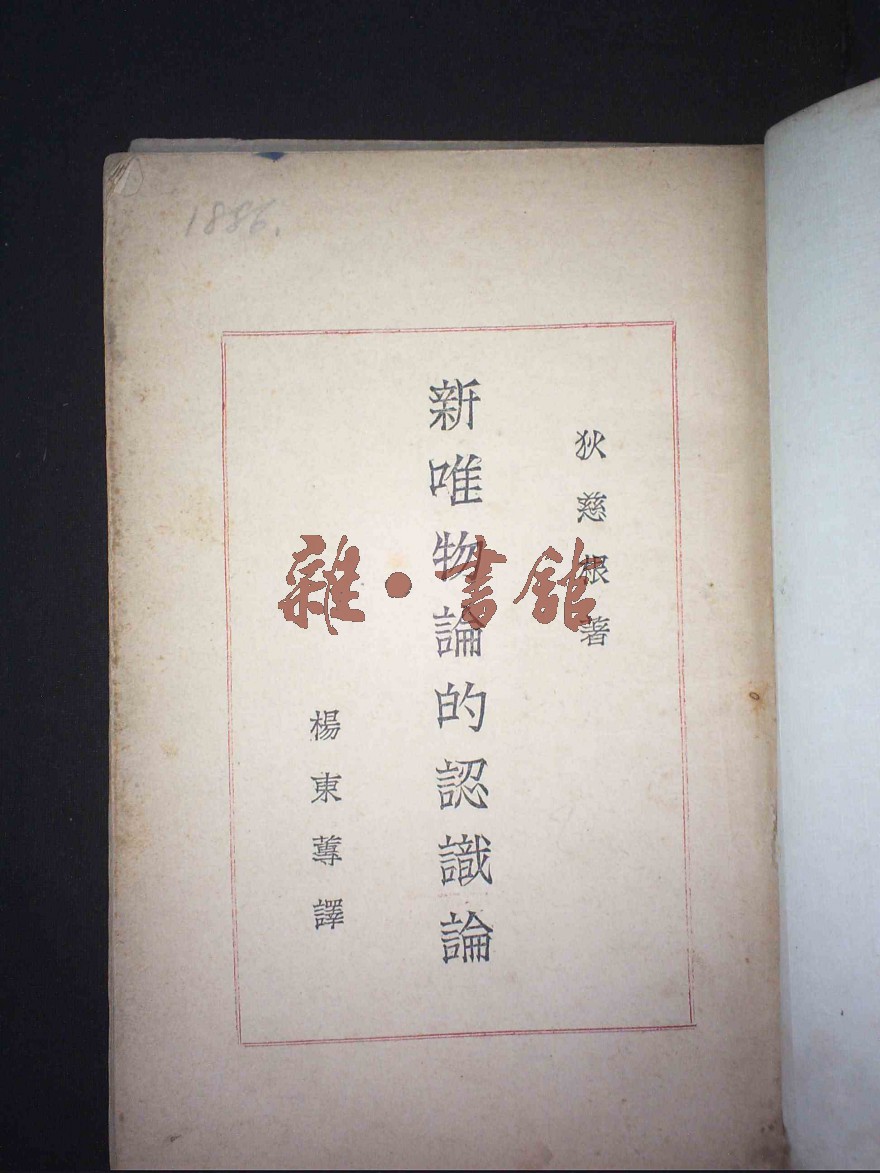 1886.
狄慈根著
新唯物論的認識論
楊東蓴譯
雜·書館